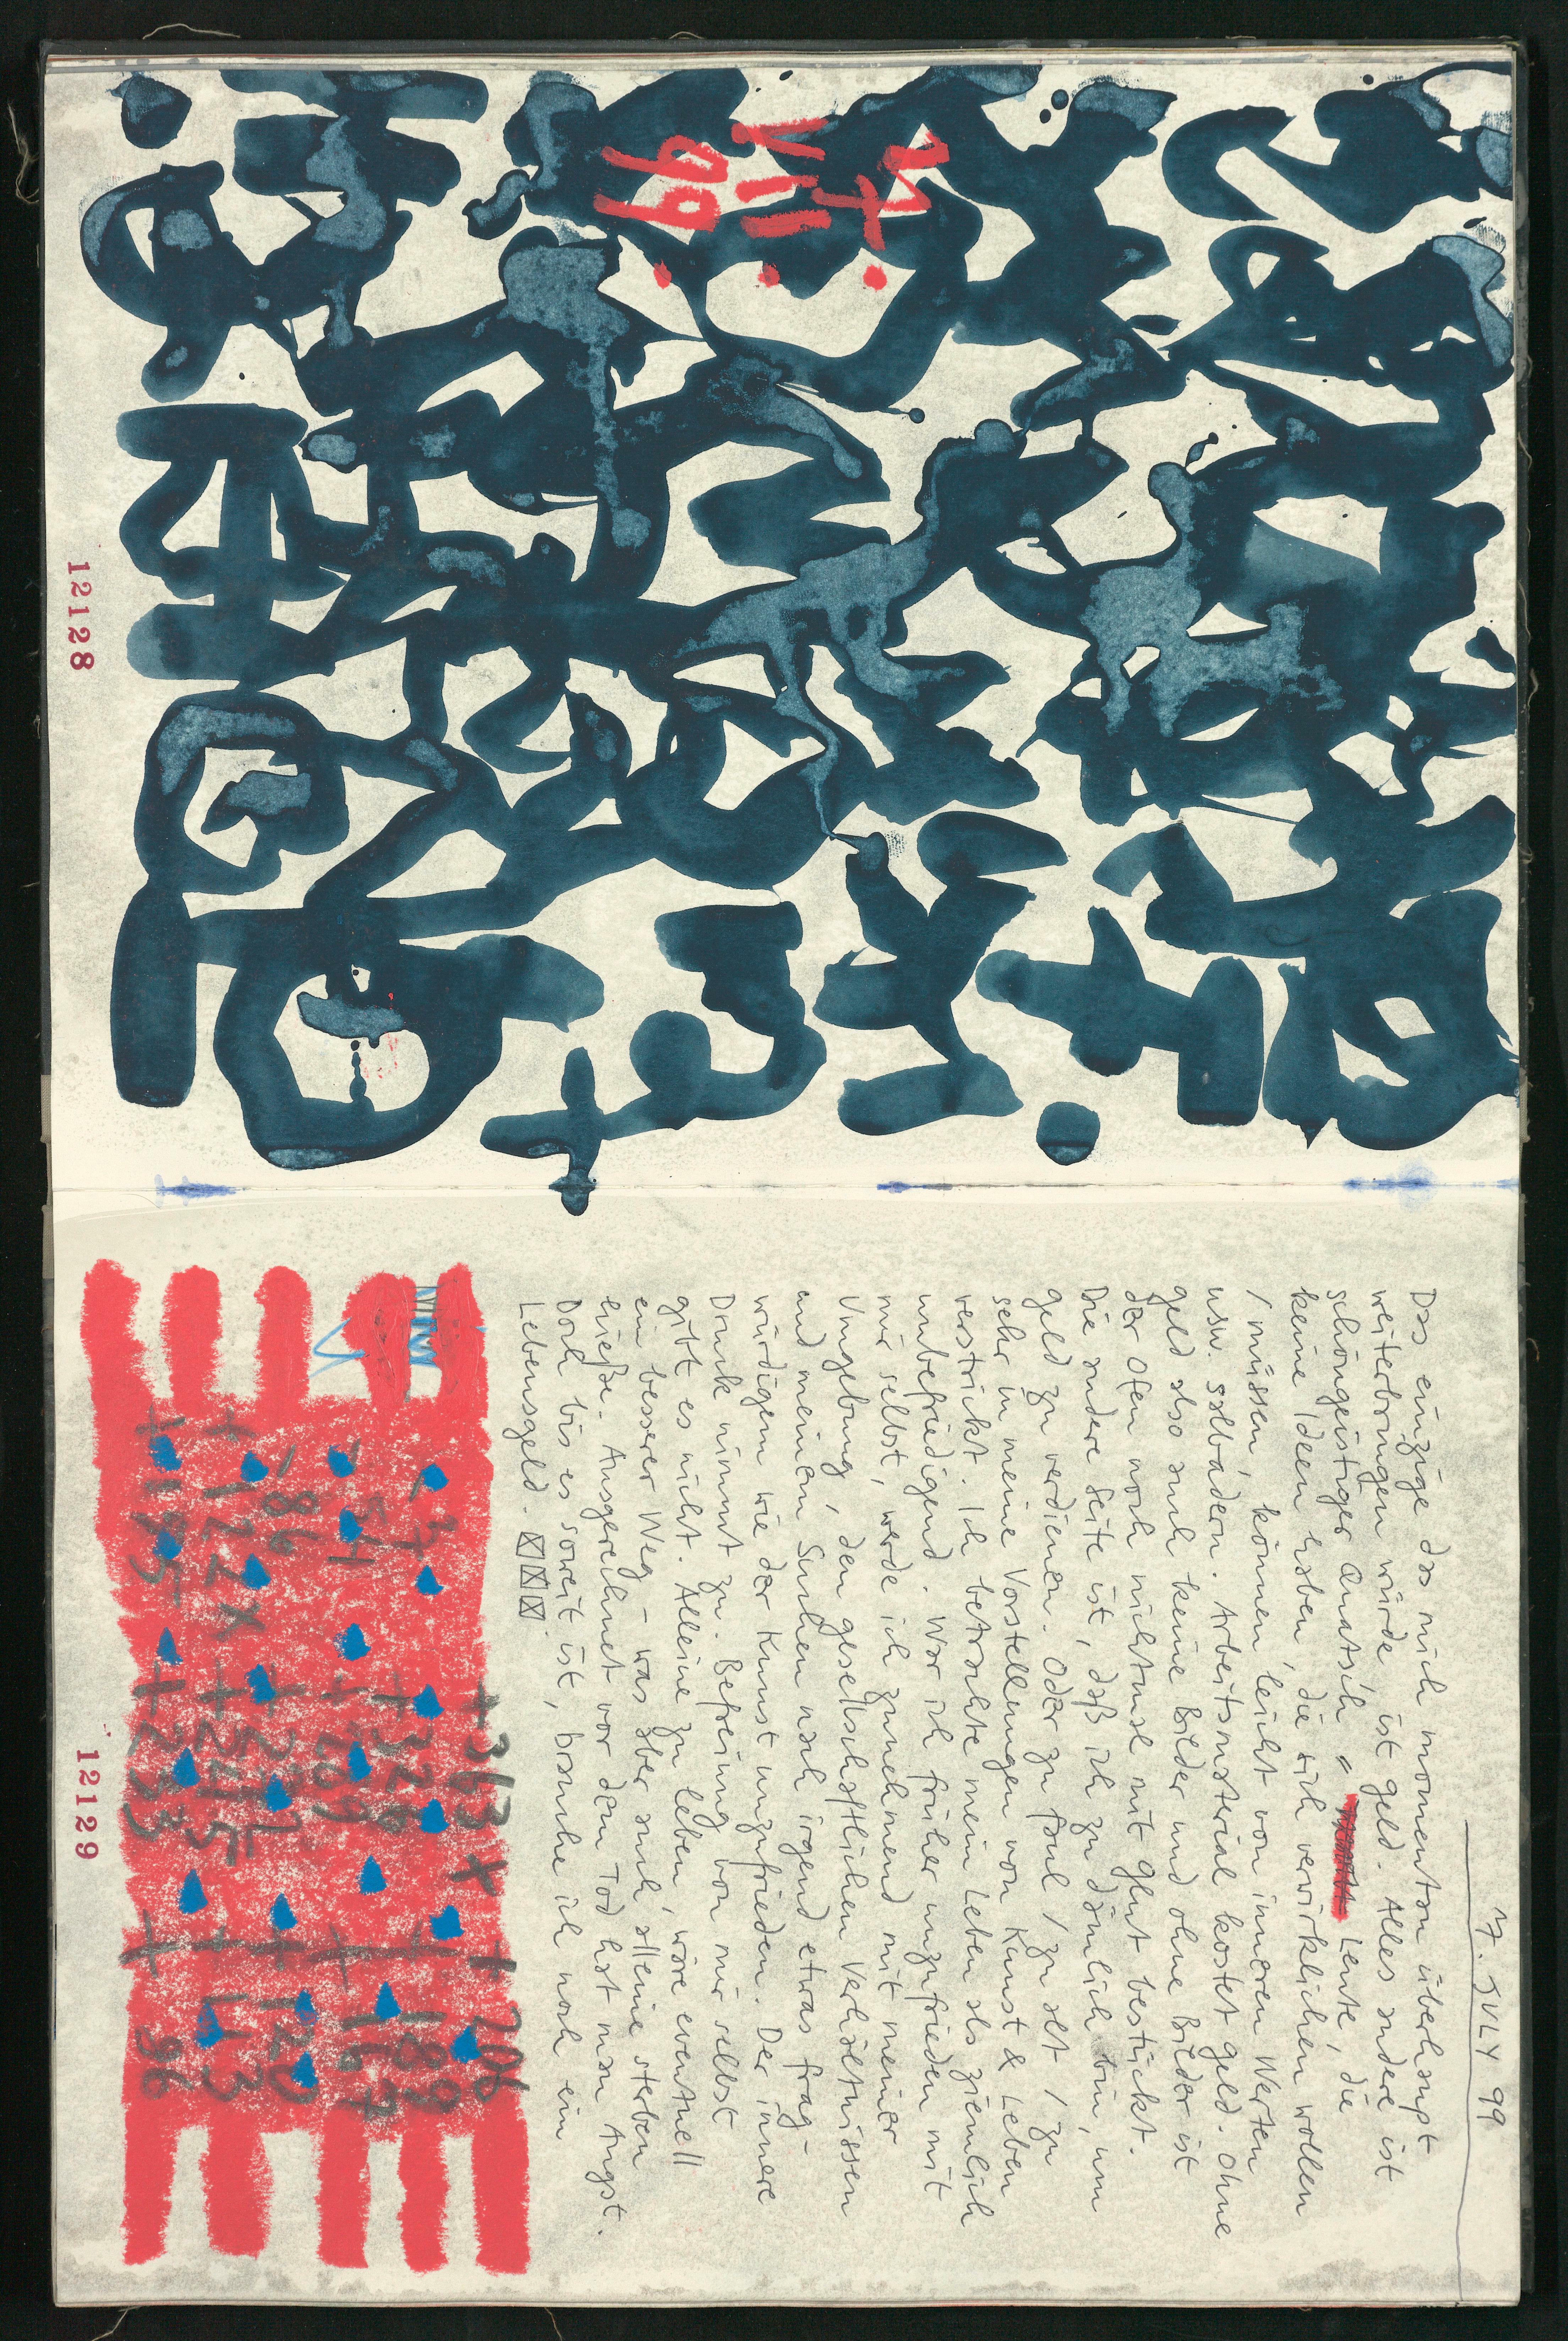 7. VII. 99
12128
7. JULY 99
Das einzige das mich momentan überhaupt
weiterbringen würde ist Geld. Alles andere ist
schöngeistiger Quatsch Leute, die
keine Ideen haben, die sich verwirklichen wollen
/ müssen, können, leicht von inneren Werten
usw. salbadern. Arbeitsmaterial kostet Geld. Ohne
Geld also auch keine Bilder und ohne Bilder ist
der Ofen noch nichtmal mit Glut bestückt.
Die andere Seite ist, daß ich zu dämlich bin, um
Geld zu verdienen. Oder zu faul / zu alt / zu
sehr in meine Vorstellungen von Kunst & Leben
verstrickt. Ich betrachte mein Leben als ziemlich
unbefriedigend. War ich früher unzufrieden mit
mir selbst, werde ich zunehmend mit meiner
Umgebung, den gesellschaftlichen Verhältnissen
und meinem Suchen nach irgend etwas frag-
würdigem wie der Kunst unzufrieden. Der innere
Druck nimmt zu. Befreiung von mir selbst
gibt es nicht. Alleine zu leben, wäre eventuell
ein besserer Weg - was aber auch alleine sterben
hieße. Ausgerechnet vor dem Tod hat man Angst.
Doch bis es soweit ist, brauche ich noch ein
Lebensgeld.
+363 x +206
-7 +326 +189
-54 +209 +167
-86 +120
+245
+233 +96
12129